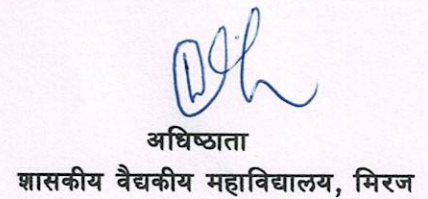 अधिष्ठाता
शासकीय वैद्यकीय महाविद्यालय, मिरज